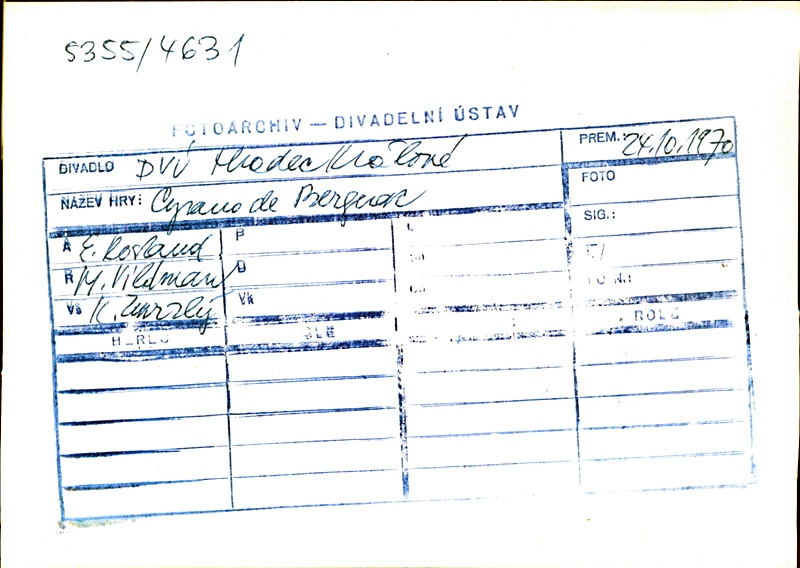 5355/4631
FOTOARCHIV — DIVADELNÍ ÚSTAV
DIVADLO DVÚ Hradec Králové PREM.: 24.10.1970
NÁZEV HRY: Cyrano de Bergerac FOTO
SIG.:
A E. Rostand P
R M. Vildman D
Vs K. Zmrzlý Vk
ROLE